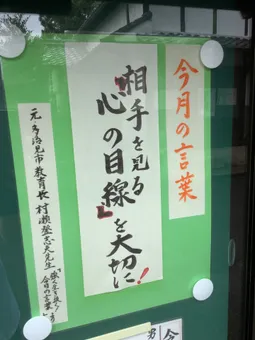 今月の言葉
相手を見る
『心の目線』を大切に!
元多治見市教育長 村瀬登志夫先生
今日の言葉